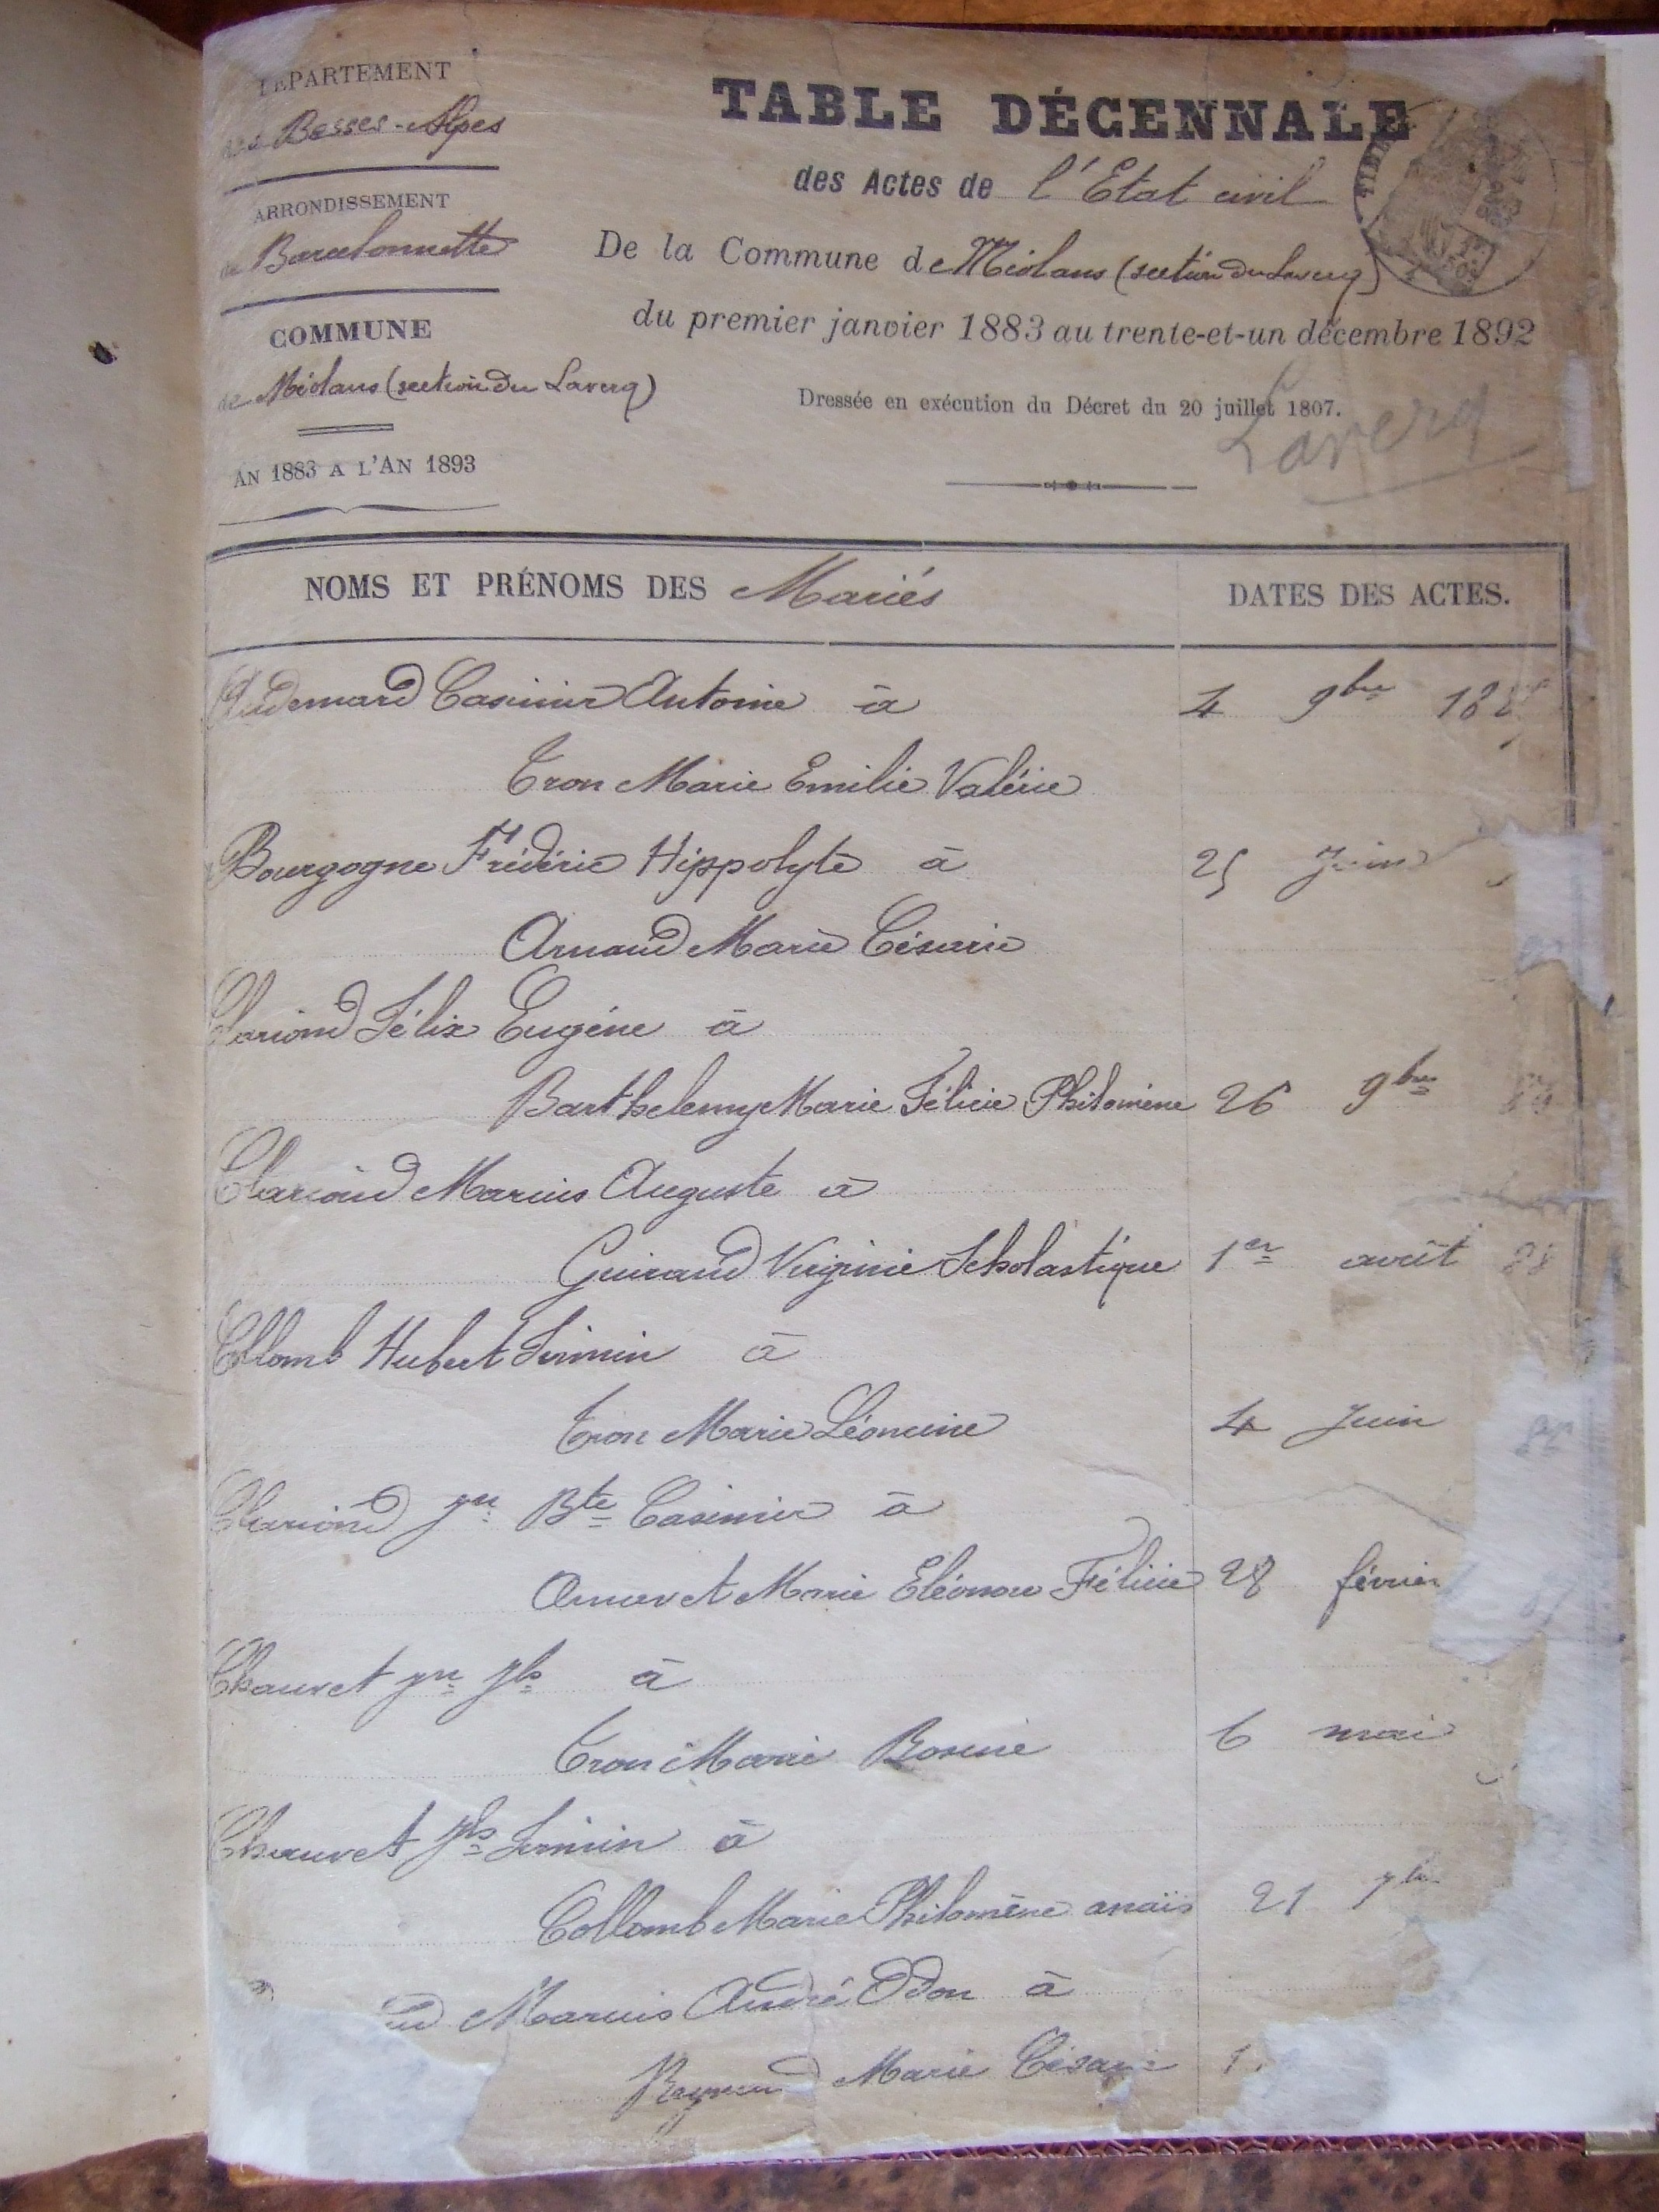 DÉPARTEMENT
des Basses-Alpes
ARRONDISSEMENT
de Barcelonnette
COMMUNE
de Méolans (section du Laverq)
AN 1883 A L'AN 1893
TABLE DÉCENNALE
des Actes de l'Etat civil
De la Commune de Méolans (section du Laverq)
du premier janvier 1883 au trente-et-un décembre 1892
Dressée en exécution du Décret du 20 juillet 1807.
Laverq
NOMS ET PRÉNOMS DES Mariés DATES DES ACTES.
Audemard Casimir Antoine à 4 9bre
Tron Marie Emilie Valérie
Bourgogne Frédéric Hippolyte à 25 Juin
Arnaud Marie Césarie
Clariond Félix Eugéne à
Barthelemy Marie Félicie Philomène 26 9bre
Clariond Marius Auguste à
Guiraud Virginie Scholastique 1er août 88
Collomb Hubert Firmin à
Tron Marie Léoncine 4 Juin
Clariond Jn Bte Casimir à
Marie Eléonore Félicie 28 février
Chauvet Jn Jh à
Tron Marie Rosine 6 mai
Chauvet Firmin à
Collomb Marie Philomène anaïs 21 7bre
Marius André Odon à
Marie